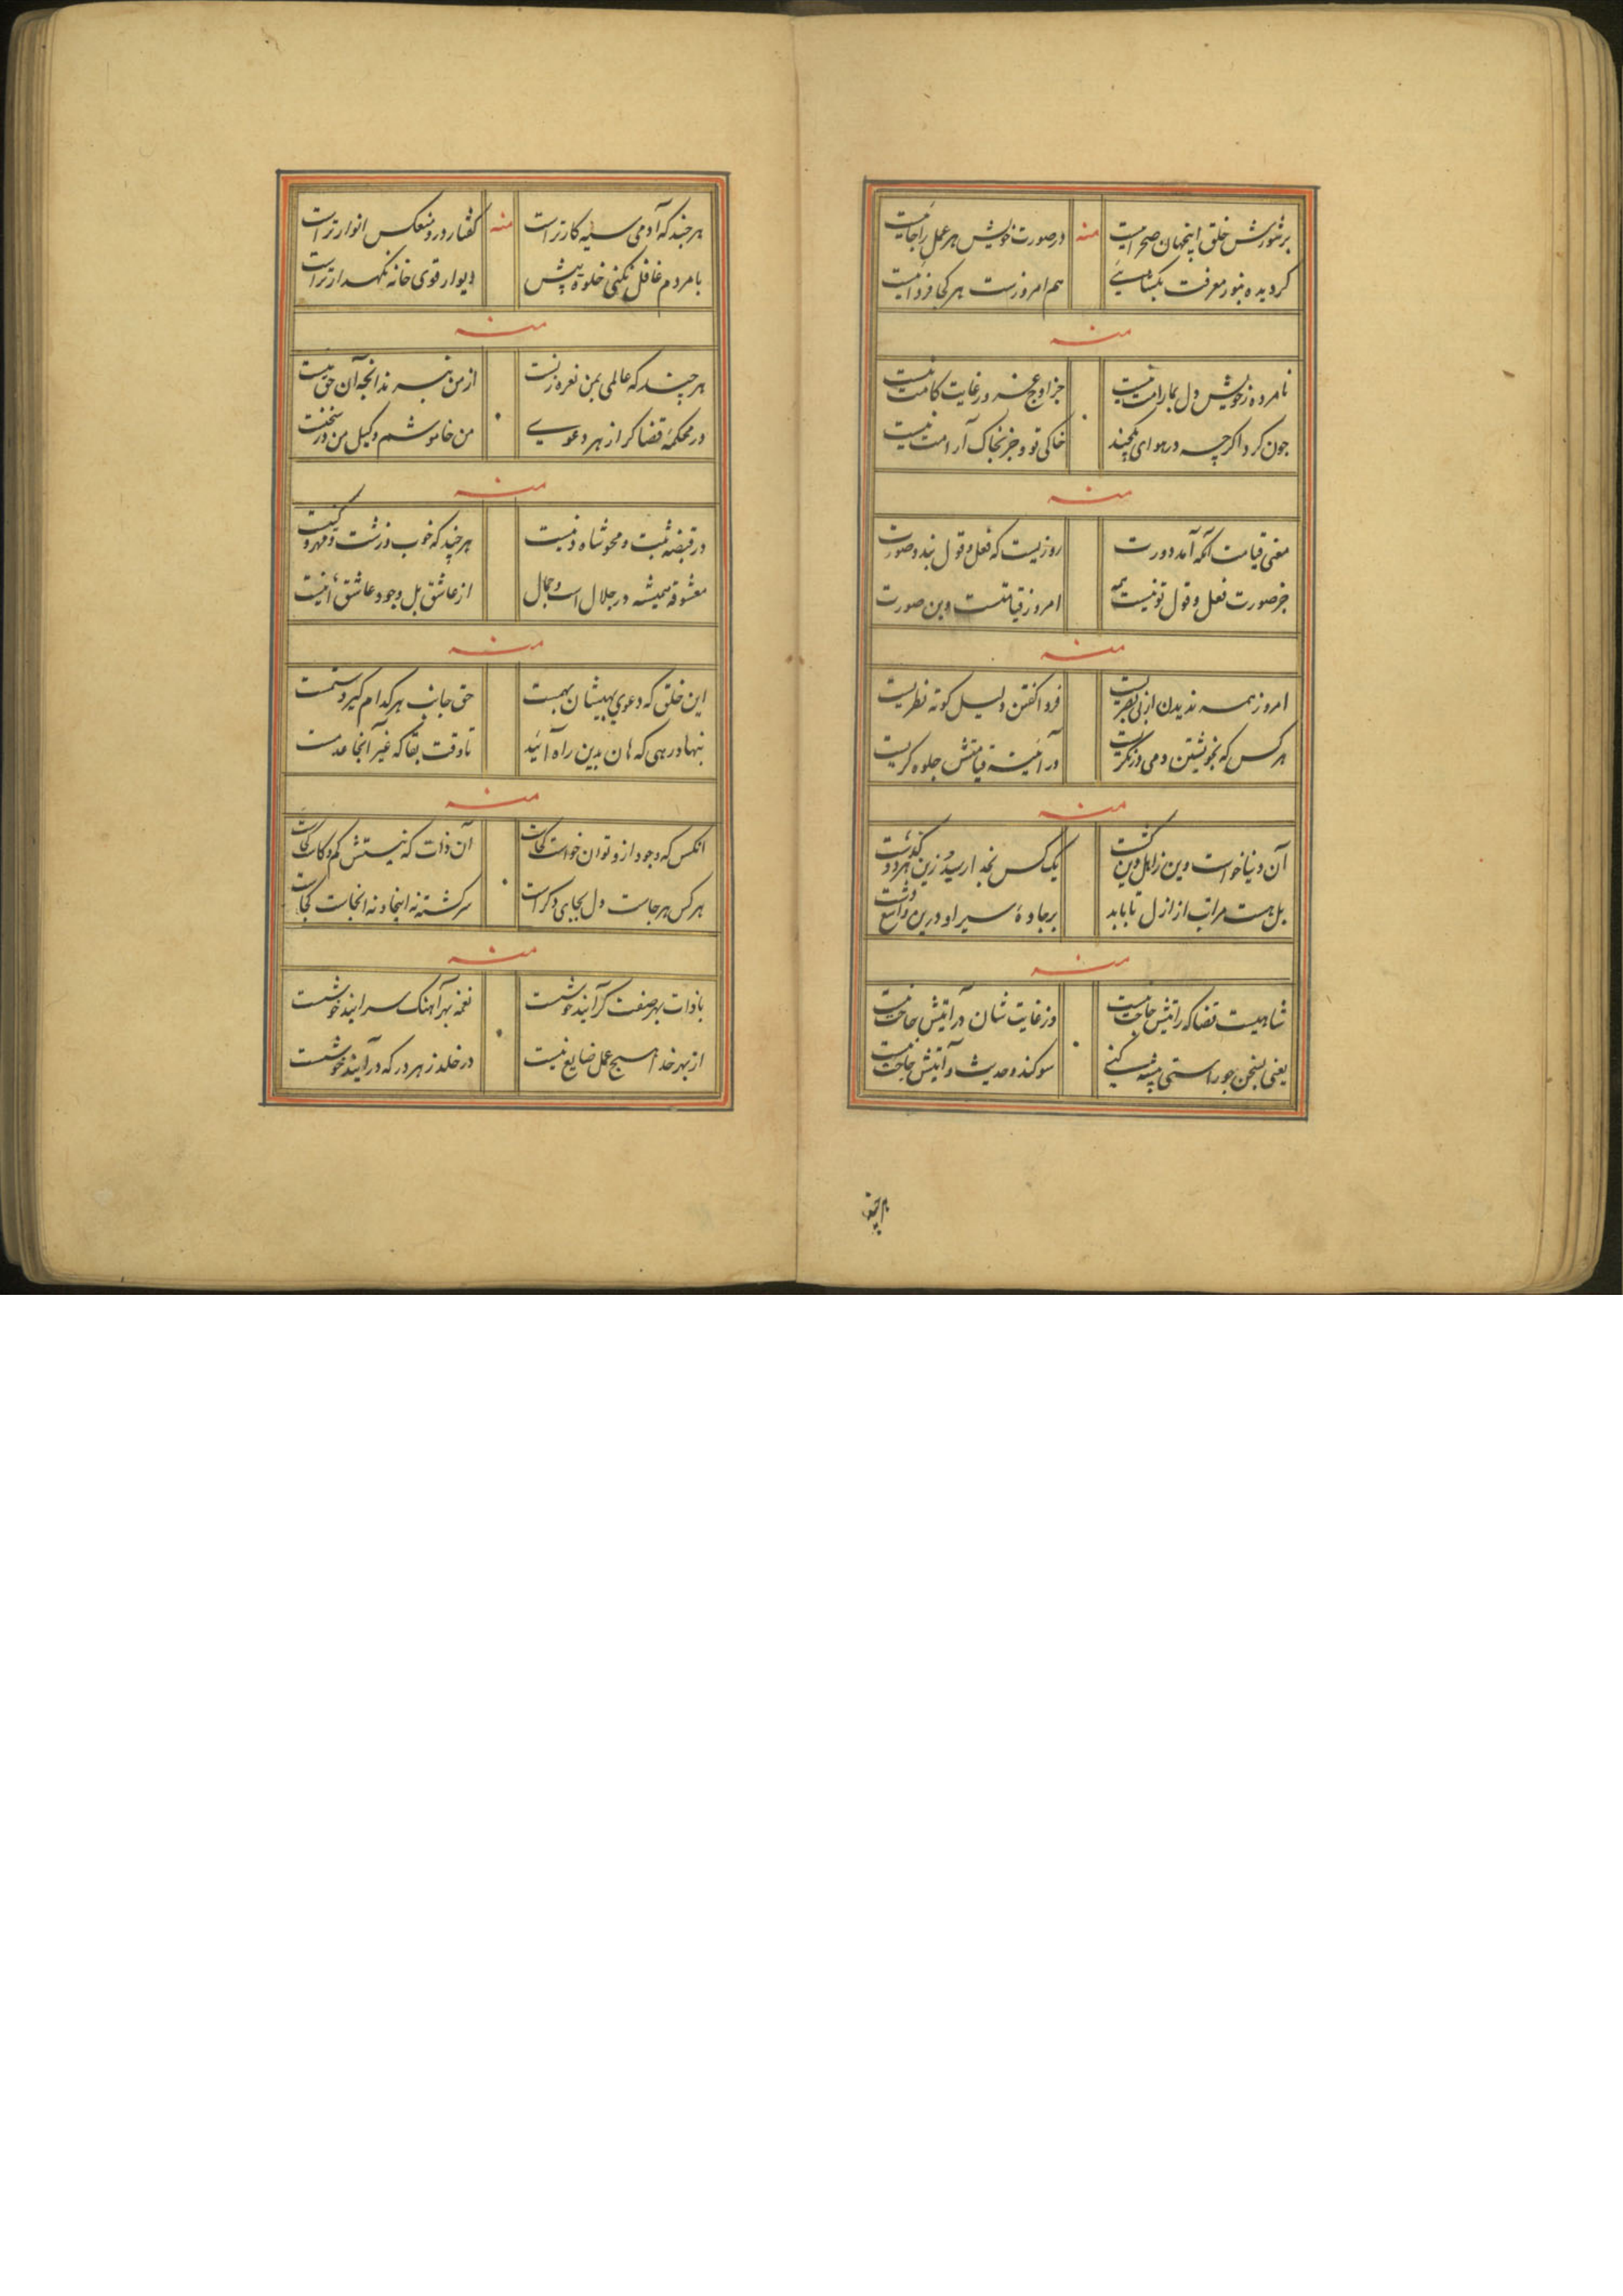 پرشورش خلق اینجهان صحرائیست منه در صورت خویش هر عمل را جائیست
گر دیده بنور معرفت بگشائی هم امروزست هر کجا فردائیست
منه
نامرده ز خویش دل بمارامت نیست جز اوج در غایت کامت نیست
چون گرد اگرچه در هوای پیچند خاکی تو و جز بخاک آرامت نیست
منه
معنی قیامت آنکه آمد دورت روزیست که فعل و قول بندد صورت
جز صورت فعل و قول تو نیست همه امروز قیامتست وین صورت
منه
امروز همه ندیدن از بی بصریست فردا گفتن دلیل کوته نظریست
هر کس که بخویشتن دمی در نگریست در آئینه قیامتش جلوه گریست
منه
آن دنیا خواست وین ز اهل دین گشت یک کس بخدا رسید و زین هر دو گذشت
بل هست مراتب از ازل تا بابد بر جادۀ سیر او درین واسع دشت
منه
شاهیست قضا که رایتش حاجت نیست وز غایت شان درآیتش حاجت نیست
یعنی بسخن چو راستی پیشه کنی سوگند و حدیث و آیتش حاجت نیست
هر چند
هر چند که آدمی سیه کارترست منه گفتار درو منعکس انوارترست
با مردم غافل نکنی خلوه پیش دیوار قوی خانه نگهدارترست
منه
هر چند که عالمی بمن نعره زنست از من نبرند آنچه آن حق منست
در محکمۀ قضا گر از هر دعوی من خاموشم وکیل من در سخنست
منه
در قبضه مثبت و محو شاه و منیست هر چند که خوب و زشت و قهر و
معشوقه همیشه در جلال است و جمال از عاشق بل وجود عاشق
منه
این خلق که دعوی بهیشان بهمست حق جانب هر کدام گیرد ستمست
بنهاد رهی که هان بدین راه آئید تا وقت بقا که غیر آنجا عدمست
منه
آنکس که وجود ازو توان خواست کجاست آن ذات که نیستش کم و کاست کجاست
هر کس هر جاست دل بجای دگرست سرگشته نه اینجا و نه آنجاست کجاست
منه
با ذات بهر صفت گرآیند خوشست نغمه بهر آهنگ سرایند خوشست
از بهر خدا هیچ عمل ضایع نیست در خلد ز هر در که درآیند خوشست